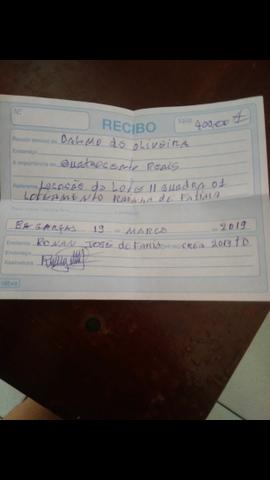 Nº
RECIBO
VALOR 400,00
Recebi(emos) de Dalmo de Oliveira
Endereço
A importância de Quatrocentos Reais
Referente Locação do Lote 11 Quadra 01
Loteamento Rainha de Fatima
19 - MARÇO - 2019
Emitente Ronan José de Crea 2013/D
Endereço
Assinatura